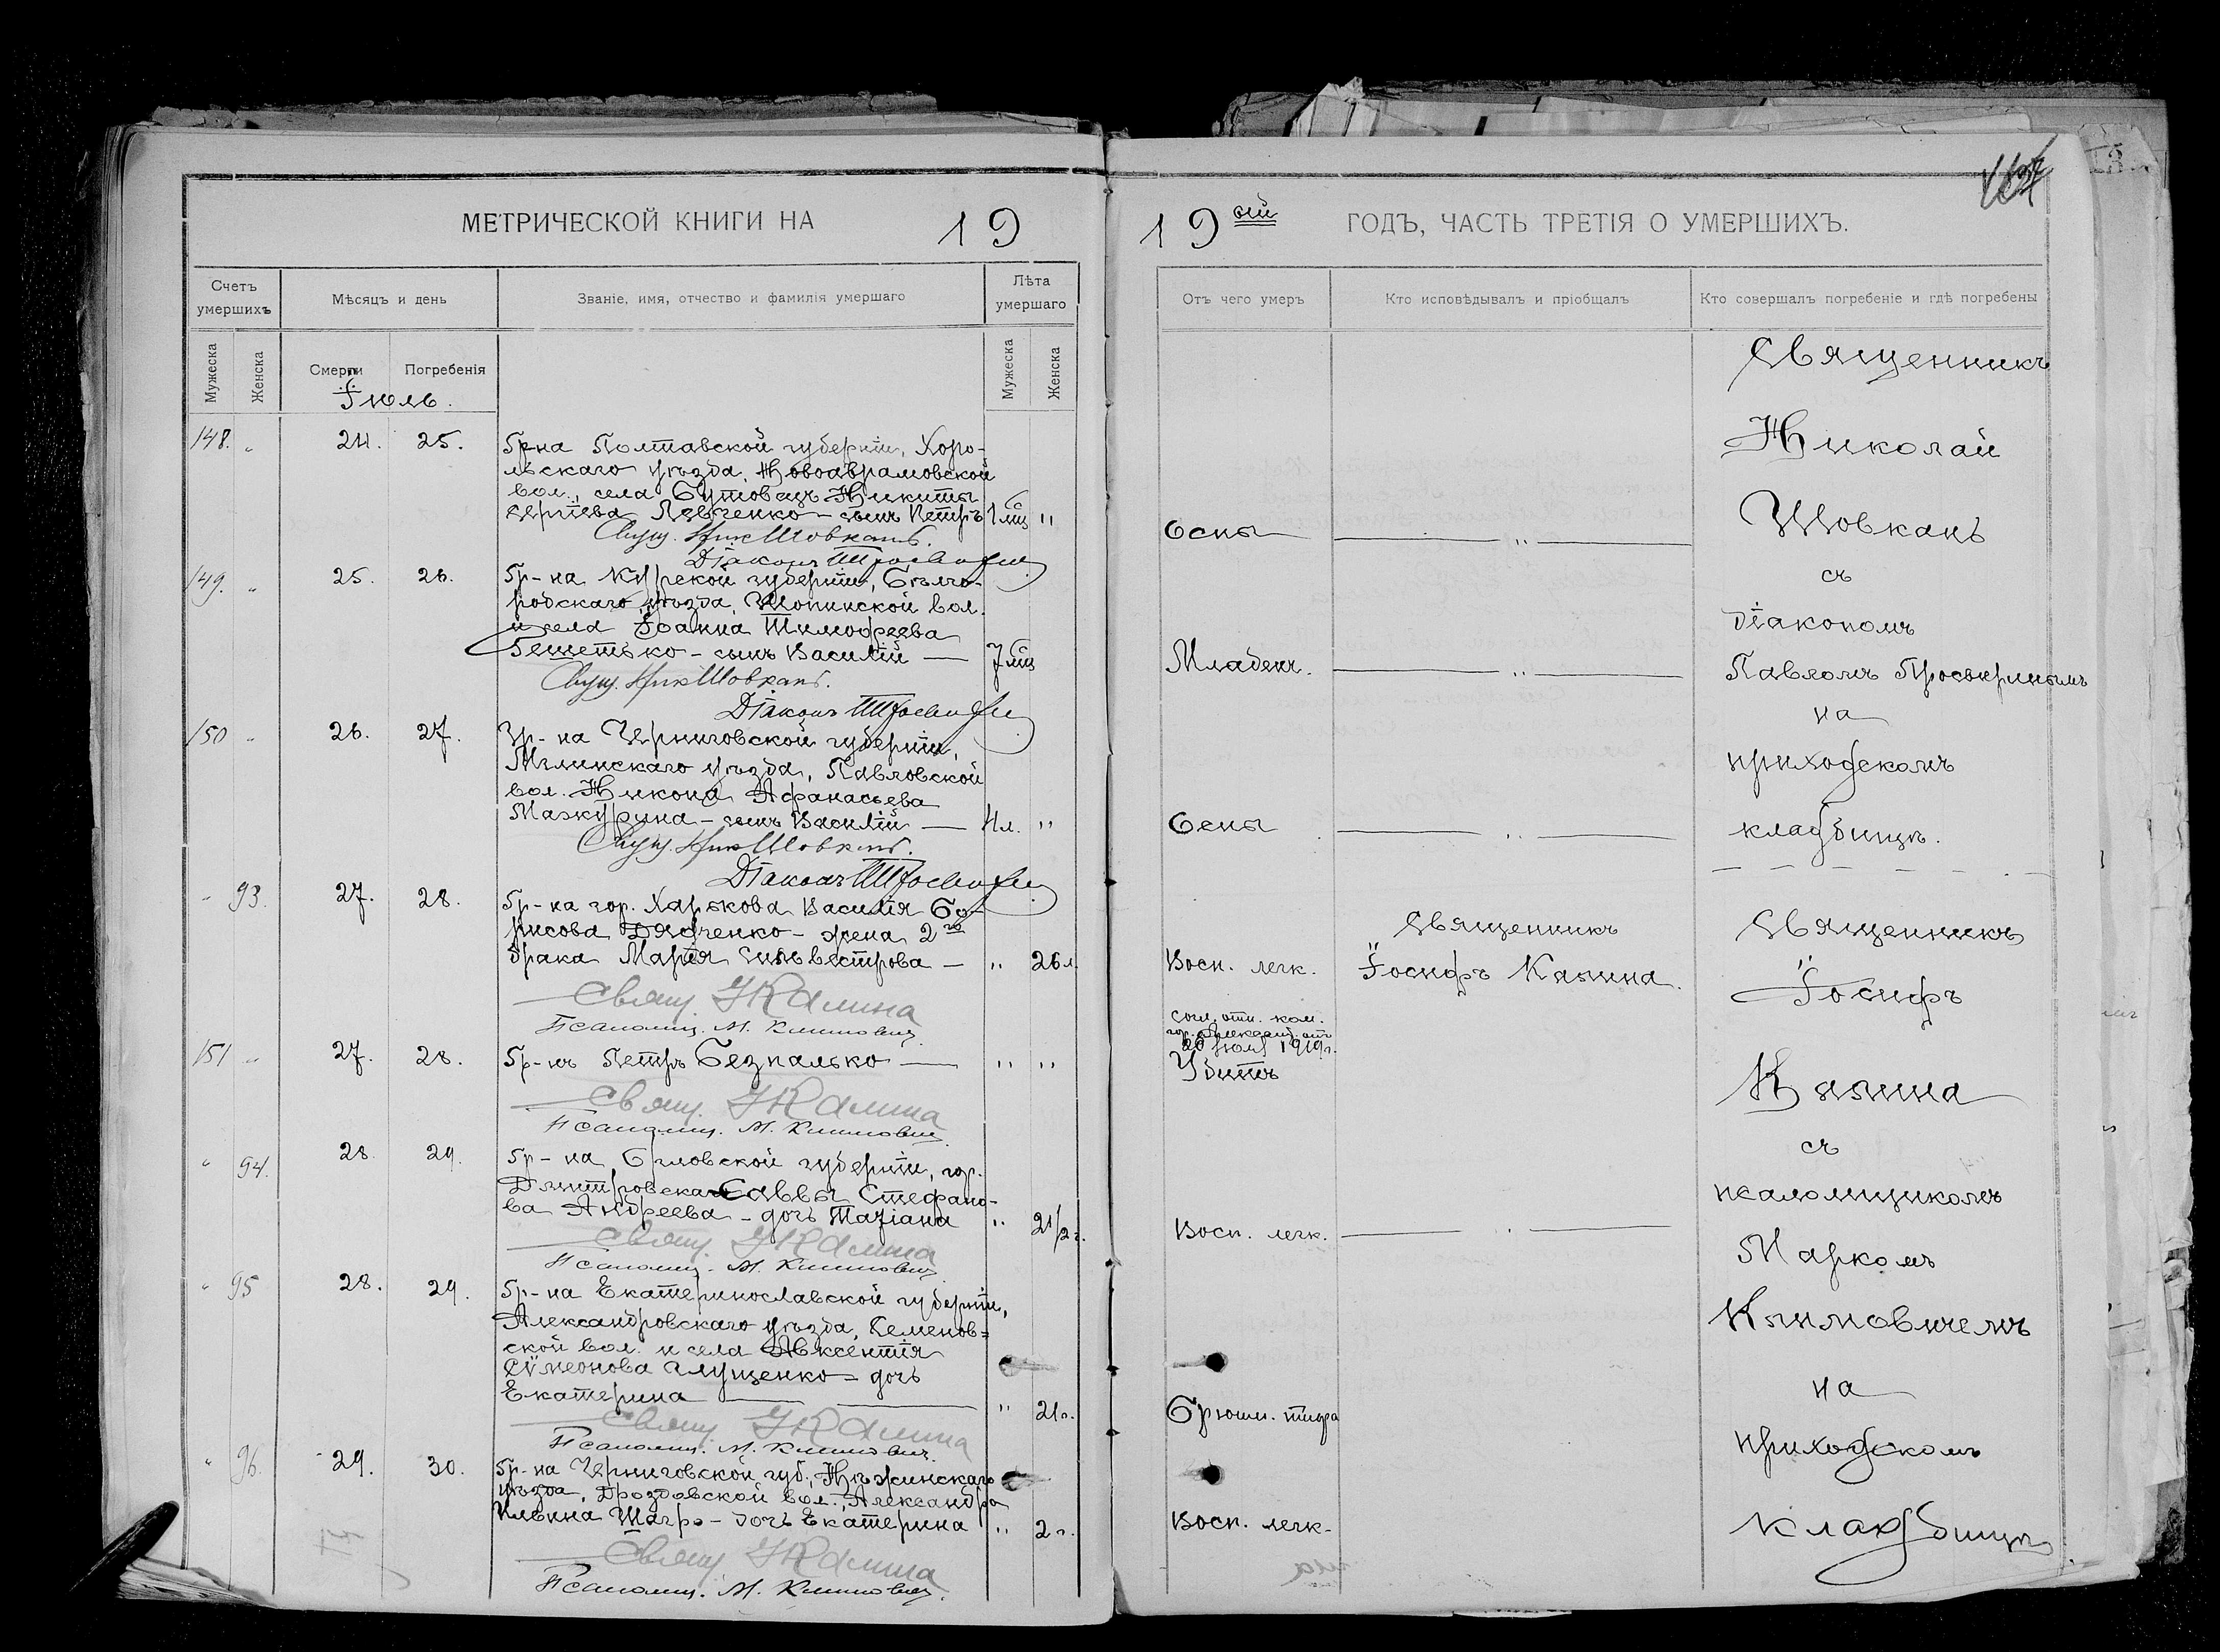 МЕТРИЧЕСКОЙ КНИГИ НА 19
Счетъ умершихъ
Мѣсяцъ и день
Званіе, имя, отчество и фамилія умершаго
Лѣта умершаго
Мужеска
Женска
Смерти
Погребенія
Мужеска
Женска
Іюль.
148. " 24. 25.
Гр-на Полтавской губерніи, Хоро-
льскаго уѣзда, Новоаврамовской
вол., села Бутовецъ Никиты
Сергіева Левченко - сынъ Петръ 1 "
Свящ. Ник Шовкань.
Діаконъ
149. " 25. 26.
Гр-на Курской губерніи, Бѣлго-
родскаго уѣзда, Шопинской вол.
и села Іоанна Тимофеева
- сынъ Василій — 7
Свящ. Ник Шовкань.
Діаконъ
150 " 26. 27.
Гр-на Черниговской губерніи,
Мглинскаго уѣзда, Павловской
вол. Никона Афанасьева
Мажурина - сынъ Василій — 4 л. "
Свящ. Ник Шовкань.
Діаконъ
" 93. 27. 28.
Гр-на гор. Харькова Василія Бо-
рисова - жена 2го
брака Марія Сильвестрова — " 26 л.
Свящ. І Калина
Псаломщ. М. Климович.
151 " 27. 28.
Гр-нъ Петръ Безпалько — " "
Свящ. І Калина
Псаломщ. М. Климович.
" 94. 28 29.
Гр-на Орловской губерніи, гор.
Саввы Стефано-
ва Андреева - дочь Татіана " 2 1/2 г.
Свящ. І Калина
Псаломщ. М. Климович
" 95 28. 29.
Гр-на Екатеринославской губерніи,
Александровскаго уѣзда, Семенов=
ской вол. и села Авксентія
Сѵмеонова Глущенко - дочь
Екатерина — " 21 г.
Свящ. І Калина
Псаломщ. М. Климович.
" 96. 29. 30.
Гр-на Черниговской губ., Нѣжинскаго
уѣзда, Дроздовской вол., Александра
Ильина - дочь Екатерина " 2 г.
Свящ. І Калина
Псаломщ. М. Климович.
19 ый ГОДЪ, ЧАСТЬ ТРЕТІЯ О УМЕРШИХЪ.
Отъ чего умеръ
Кто исповѣдывалъ и пріобщалъ
Кто совершалъ погребеніе и гдѣ погребены
Оспы — " —
Младенч. — " —
Оспы — " —
Восп. легк.
Священникъ
Іосифъ Калина.
20 Іюля 1919 г.
Убитъ
Восп. легк. — " —
Брюшн. тифа
Восп. легк.
Священникъ
Николай
Шовкань
съ
діакономъ
Павломъ Просвиринымъ
на
приходскомъ
кладбищѣ.
Священникъ
Іосифъ
Калина
съ
псаломщикомъ
Маркомъ
Климовичемъ
на
приходскомъ
кладбищѣ